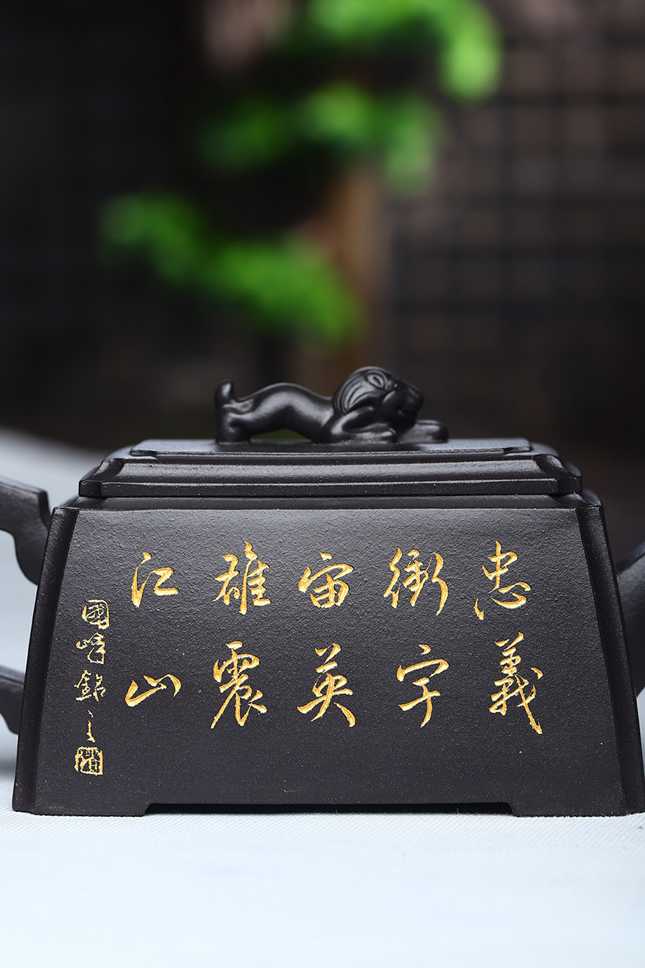 忠義
衝宇
宙英
雄震
江山
國峰銘之